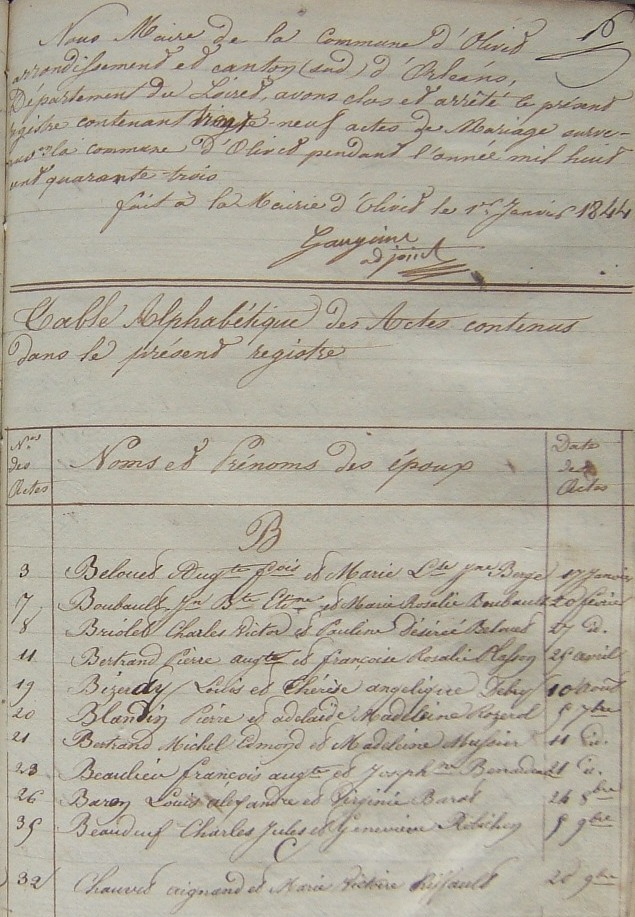 16
Nous Maire de la commune d'Olivet
arrondissement et canton (sud) d'Orléans,
Département du Loiret, avons clos et arrêté le présent
registre contenant trente neuf actes de Mariage surve-
nus la commune d'Olivet pendant l'année mil huit
cent quarante trois
fait à la Mairie d'Olivet le 1er Janvier 1844
adjoint
Table Alphabétique des Actes contenus
dans le présent registre
Nos des Actes
Noms et Prénoms des époux
Date des Actes
B
3 Belouet Augte fçois et Marie Lse Jne Berge 17 Janvier
7 Boubault Jn Bte Etne et Marie Rosalie Boubault 20 février
8 Briolet Charles Victor et Pauline Désirée Belouet 27 id.
11 Bertrand Pierre augte et françoise Rosalie 25 avril
19 Bizerdy Louis et Thérèse angélique 10 Août
20 Blandin Pierre et adelaïde Madeleine 5 7bre
21 Bertrand Michel Edmond et Madeleine 11 id.
23 Beaulieu françois augte et Josephne 21 id.
26 Baron Louis alexandre et Virginie Barat 24 8bre
35 Charles Jules et Geneviève 5 9bre
C
32 Chauvet aignand et Marie Victoire Riffault 20 9bre